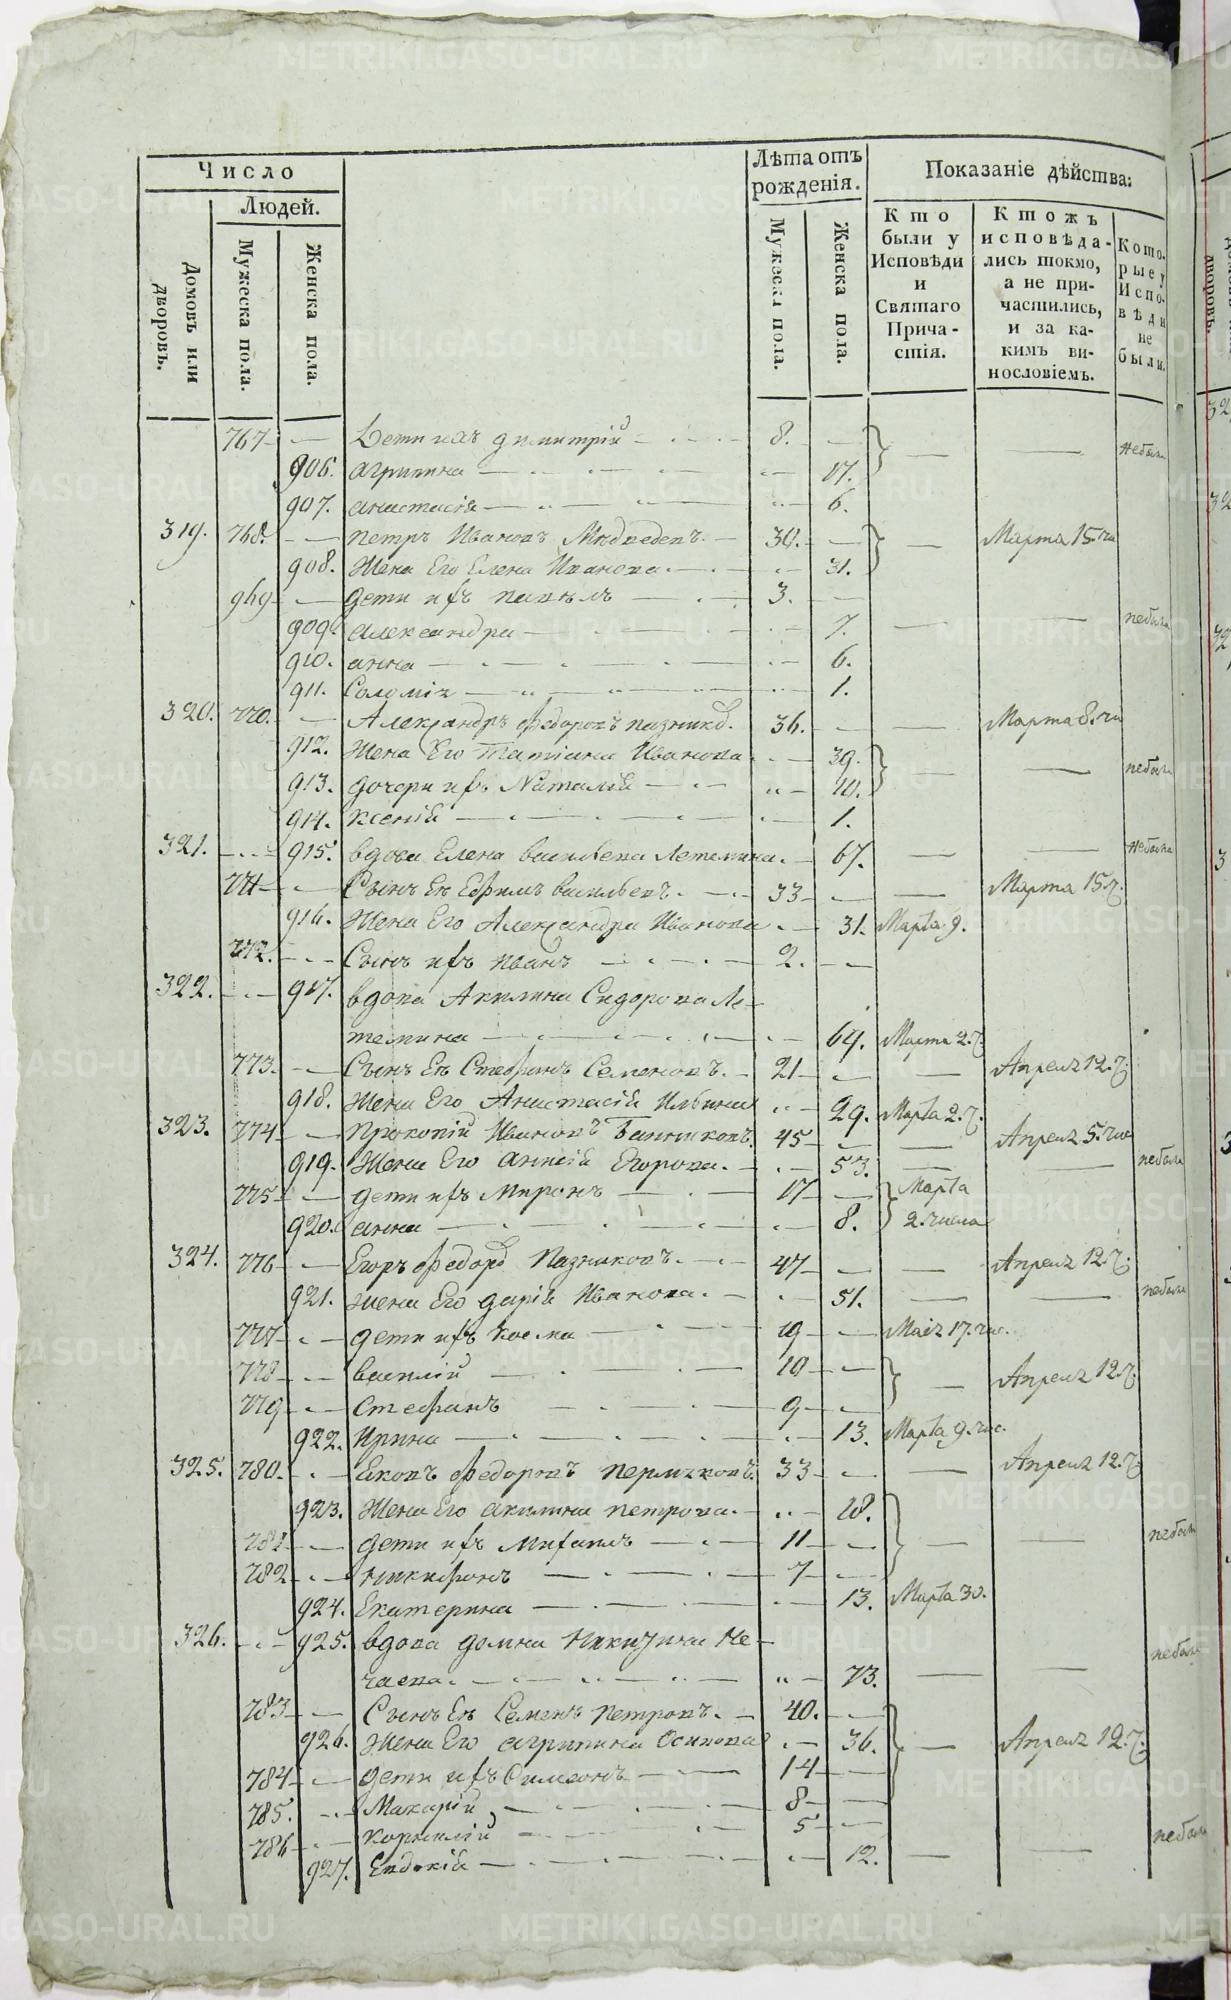 Число
Людей.
Домовъ или дворовъ.
Мужеска пола.
Женска пола.
Лѣта отъ рожденія.
Мужеска пола.
Женска пола.
Показаніе дѣйства:
Кто были у Исповѣди и Святаго Причастія.
Ктожъ исповѣдались токмо, а не причастились, и за какимъ винословіемъ.
Которые у Исповѣди не были.
767 Дети ихъ димитрій 8.
906. агрипина 17. небыли
907. анастасія 6.
319. 768. петръ Ивановъ Медведевъ. 30. Марта 15 чи
908. Жена Его Елена Иванова. 31.
969 дети ихъ павелъ 3.
909. александра 7. небыли
910. анна 6.
911. Соломія 1.
320. 770. Александръ Федоровъ пазников. 36. Марта 8. чи
912. Жена Его Татіана Иванова 39.
913. дочери ихъ Наталія 10. небыли
914. Ксенія 1.
321. 915. вдова Елена васильева Летемина. 67. небыла
771 Сынъ Ея Ефимъ васильевъ. 33 Марта 15. ч.
916. Жена Его Александра Иванова 31. Марта 9.
772. Сынъ ихъ иванъ 2.
322. 917. вдова Акилина Сидорова Ле-
темина 69. Марта 2. ч.
773. Сынъ Ея Стефанъ Семеновъ. 21 Апреля 12. ч
918. Жена Его Анастасія Ильина 29. Марта 2. ч.
323. 774 Прокопій Ивановъ Банниковъ. 45 Апреля 5. чис
919. Жена Его Анисія Егорова. 53. небыла
775 дети ихъ Миронъ 17 Марта
920. анна 8. 2. числа
324. 776 Егоръ Федоров Пазниковъ. 47 Апреля 12. ч.
921. жена Его дарія Иванова. 51. небыла
777 дети ихъ Косма 19 Маія 17. чис.
778 василій 10 Апреля 12 ч.
779 Стефанъ 9
922. Ирина 13. Марта 9. чис.
325. 780. Яковъ Федоровъ пермяковъ. 33 Апреля 12. ч.
923. Жена Его акилина петрова. 28.
781 дети ихъ Михаилъ 11 небыли
782 Никифоръ 7
924. Екатерина 13. Марта 30.
326. 925. вдова домна Никитина Не-
чаева. 73. небыла
783 Сынъ Ея Семенъ петровъ. 40.
926. Жена Его агрипина Осипова 36. Апреля 12. ч.
784 дети ихъ Симеонъ 14
785. Макарій 8
786 Корнилій 5
927. Евдокія 12. небыли
METRIKI.GASO-URAL.RU